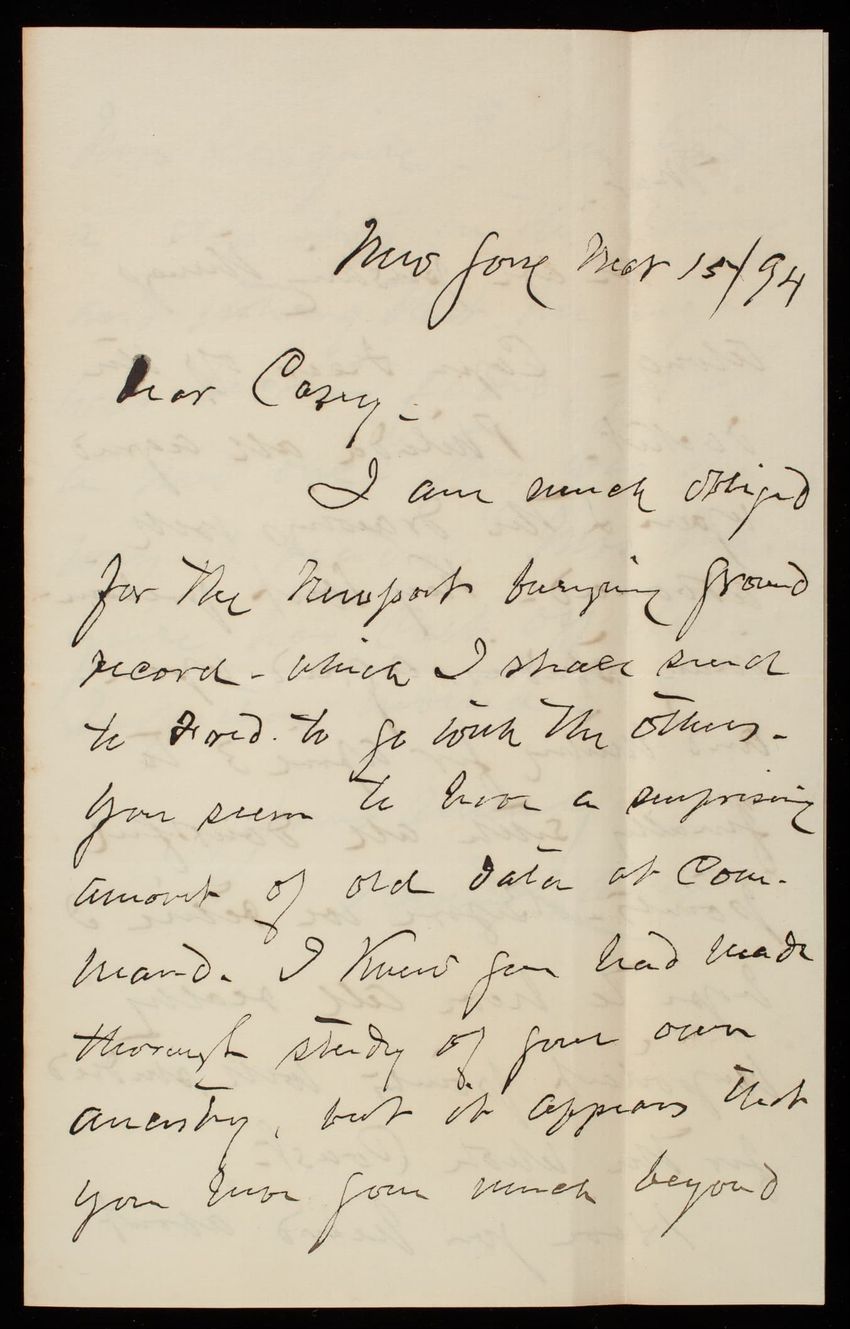 New York Mar 15/94
Dear Casey -
I am much obliged
for the Newport burying ground
record - which I shall send
to Fred. to go with the others -
You seem to have a surprising
amount of old data at Com-
mand. I knew you had made
thorough study of your own
ancestry, but it appears that
you have gone much beyond